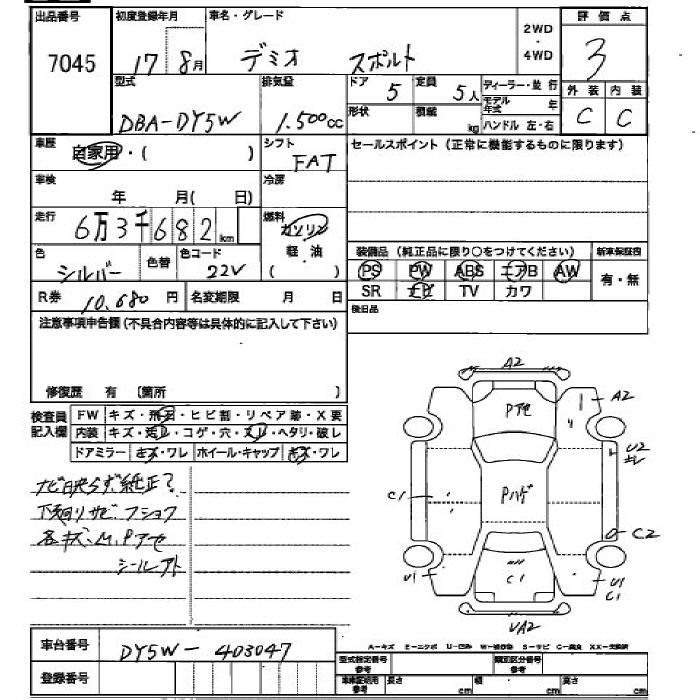 出品番号 初度登録年月 車名・グレード 2WD ・ 4WD 評価点
7045 17 8月 デミオ スポルト 3
型式 排気量 ドア 5 定員 5人 ディーラー・並行 外装 内装
DBA-DY5W 1.500cc 形状 積載 kg モデル年式 年 C C
ハンドル 左・右
車歴 自家用・( ) シフト FAT セールスポイント(正常に機能するものに限ります)
車検 年 月( 日) 冷房
走行 6万3千682km 燃料 ガソリン 軽・油 ( )
色 シルバー 色替 色コード 22V
装備品(純正品に限り○をつけてください) 新車保証書
PS PW ABS エアB AW 有・無
SR ナビ TV カワ
R券 10.680円 名変期限 月 日 後日品
注意事項申告欄(不具合内容等は具体的に記入して下さい)
修復歴 有 〔箇所 〕
検査員記入欄 FW キズ・飛石・ヒビ割・リペア跡・X要
内装 キズ・汚レ・コゲ・穴・スレ・ヘタリ・破レ
ドアミラー キズ・ワレ ホイール・キャップ キズ・ワレ
ナビ映らず純正?
下廻リサビ.フショク
各キズ.M.Pアセ
シールアト
A2
Pアセ
A2
U2
キレ
Pハゲ
C1
C2
U1
C1
U1
C1
UA2
車台番号 DY5W-403047
登録番号
A-キズ E-エクボ U-凹み W-補修跡 S-サビ C-腐食 XX-交換済
型式指定番号 参考 類別区分番号 参考
車庫証明用 参考 長さ cm 幅 cm 高さ cm